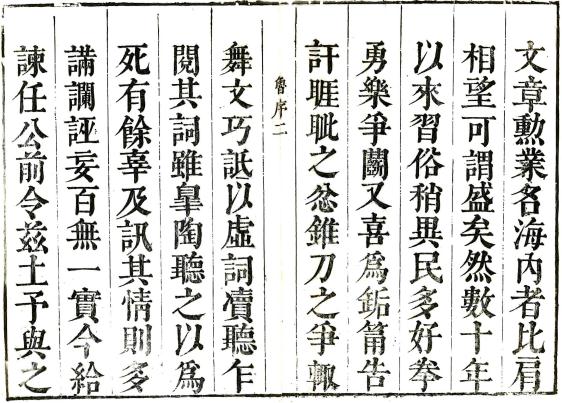 文章勳業名海内者比肩
相望可謂盛矣然數十年
以來習俗稍異民多好拳
勇樂爭鬭又喜爲缿筩告
訐睚眦之忿錐刀之爭輙
魯序二
舞文巧詆以虛詞凟聽乍
閱其詞雖臯陶聽之以爲
死有餘辜及訊其情則多
讕誣妄百無一實今給
諫任公前令兹土予與之